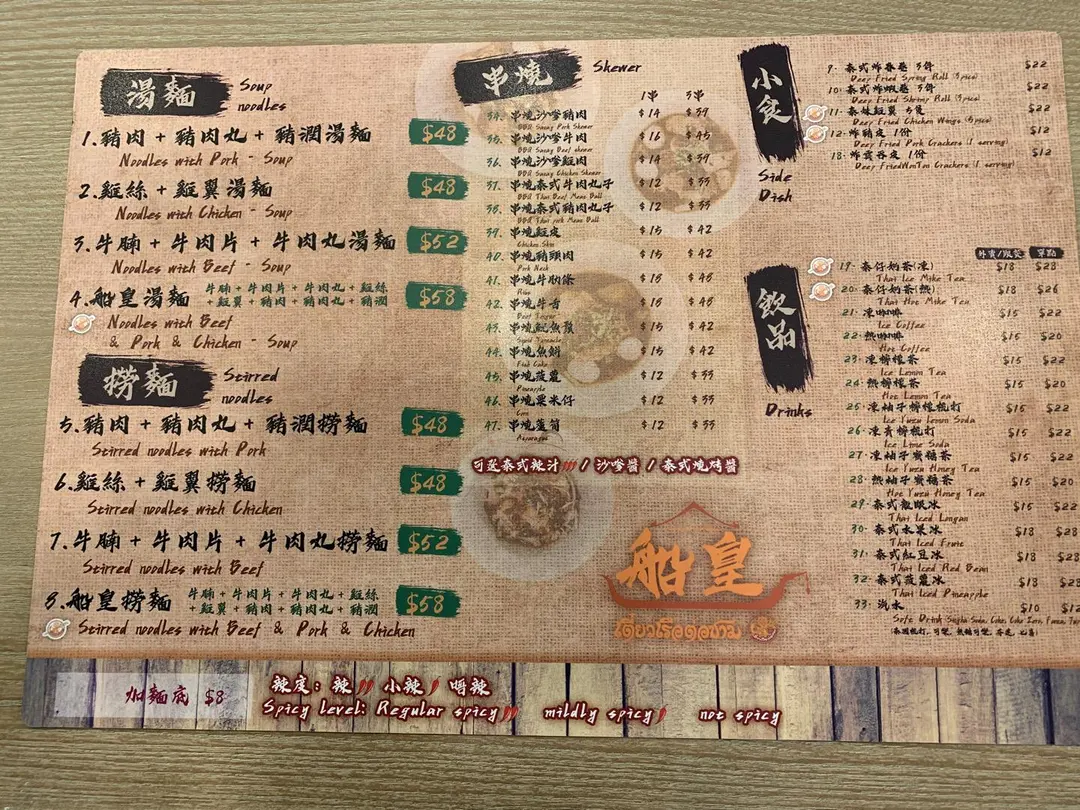 湯麵 Soup noodles
1. 豬肉 + 豬肉丸 + 豬潤湯麵 $48
Noodles with Pork - Soup
2. 雞絲 + 雞翼湯麵 $48
Noodles with Chicken - Soup
3. 牛腩 + 牛肉片 + 牛肉丸湯麵 $52
Noodles with Beef - Soup
4. 船皇湯麵 牛腩 + 牛肉片 + 牛肉丸 + 雞絲 $58
+ 雞翼 + 豬肉 + 豬肉丸 + 豬潤
Noodles with Beef
& Pork & Chicken - Soup
撈麵 Stirred noodles
5. 豬肉 + 豬肉丸 + 豬潤撈麵 $48
Stirred noodles with Pork
6. 雞絲 + 雞翼撈麵 $48
Stirred noodles with Chicken
7. 牛腩 + 牛肉片 + 牛肉丸撈麵 $52
Stirred noodles with Beef
8. 船皇撈麵 牛腩 + 牛肉片 + 牛肉丸 + 雞絲 $58
+ 雞翼 + 豬肉 + 豬肉丸 + 豬潤
Stirred noodles with Beef & Pork & Chicken
串燒 Skewer
1串 3串
34. 串燒沙嗲豬肉 $14 $39
BBQ Satay Pork Skewer
35. 串燒沙嗲牛肉 $16 $45
BBQ Satay Beef Skewer
36. 串燒沙嗲雞肉 $14 $39
BBQ Satay Chicken Skewer
37. 串燒泰式牛肉丸子 $12 $33
BBQ Thai Beef Meat Ball
38. 串燒泰式豬肉丸子 $12 $33
BBQ Thai Pork Meat Ball
39. 串燒雞皮 $15 $42
Chicken Skin
40. 串燒豬頸肉 $15 $42
Pork Neck
41. 串燒牛肋條 $16 $45
42. 串燒牛舌 $16 $45
Beef Tongue
43. 串燒魷魚鬚 $15 $42
Squid Tentacle
44. 串燒魚餅 $15 $42
Fish Cake
45. 串燒菠蘿 $12 $33
Pineapple
46. 串燒粟米仔 $12 $33
Corn
47. 串燒蘆筍 $12 $33
Asparagus
可選泰式辣汁 / 沙嗲醬 / 泰式燒烤醬
船皇
小食
Side Dish
9. 泰式炸春卷 3件 $22
Deep Fried Spring Roll (3pics)
10. 泰式炸蝦卷 3件 $22
Deep Fried Shrimp Roll (3pics)
11. 泰妹雞翼 5隻 $22
Deep Fried Chicken Wings (5pics)
12. 炸豬皮 1份 $12
Deep Fried Pork Crackers (1 serving)
18. 炸雲吞皮 1份 $12
Deep Fried WonTon Crackers (1 serving)
飲品
Drinks
外賣/散餐 單點
19. 泰仔奶茶(凍) $18 $28
Thai Ice Milk Tea
20. 泰仔奶茶(熱) $18 $26
Thai Hot Milk Tea
21. 凍咖啡 $15 $22
Ice Coffee
22. 熱咖啡 $15 $20
Hot Coffee
23. 凍檸檬茶 $15 $22
Ice Lemon Tea
24. 熱檸檬茶 $15 $20
Hot Lemon Tea
25. 凍柚子檸檬梳打 $15 $22
Ice Yuzu Lemon Soda
26. 凍青檸梳打 $15 $22
Ice Lime Soda
27. 凍柚子蜜糖茶 $15 $22
Ice Yuzu Honey Tea
28. 熱柚子蜜糖茶 $15 $20
Hot Yuzu Honey Tea
29. 泰式龍眼冰 $15 $22
Thai Iced Longan
30. 泰式水果冰 $18 $28
Thai Iced Fruit
31. 泰式紅豆冰 $18
Thai Iced Red Bean
32. 泰式菠蘿冰 $18
Thai Iced Pineapple
33. 汽水 $10
Soft Drink
加麵底 $8
辣度: 辣 小辣 唔辣
Spicy Level: Regular spicy mildly spicy not spicy